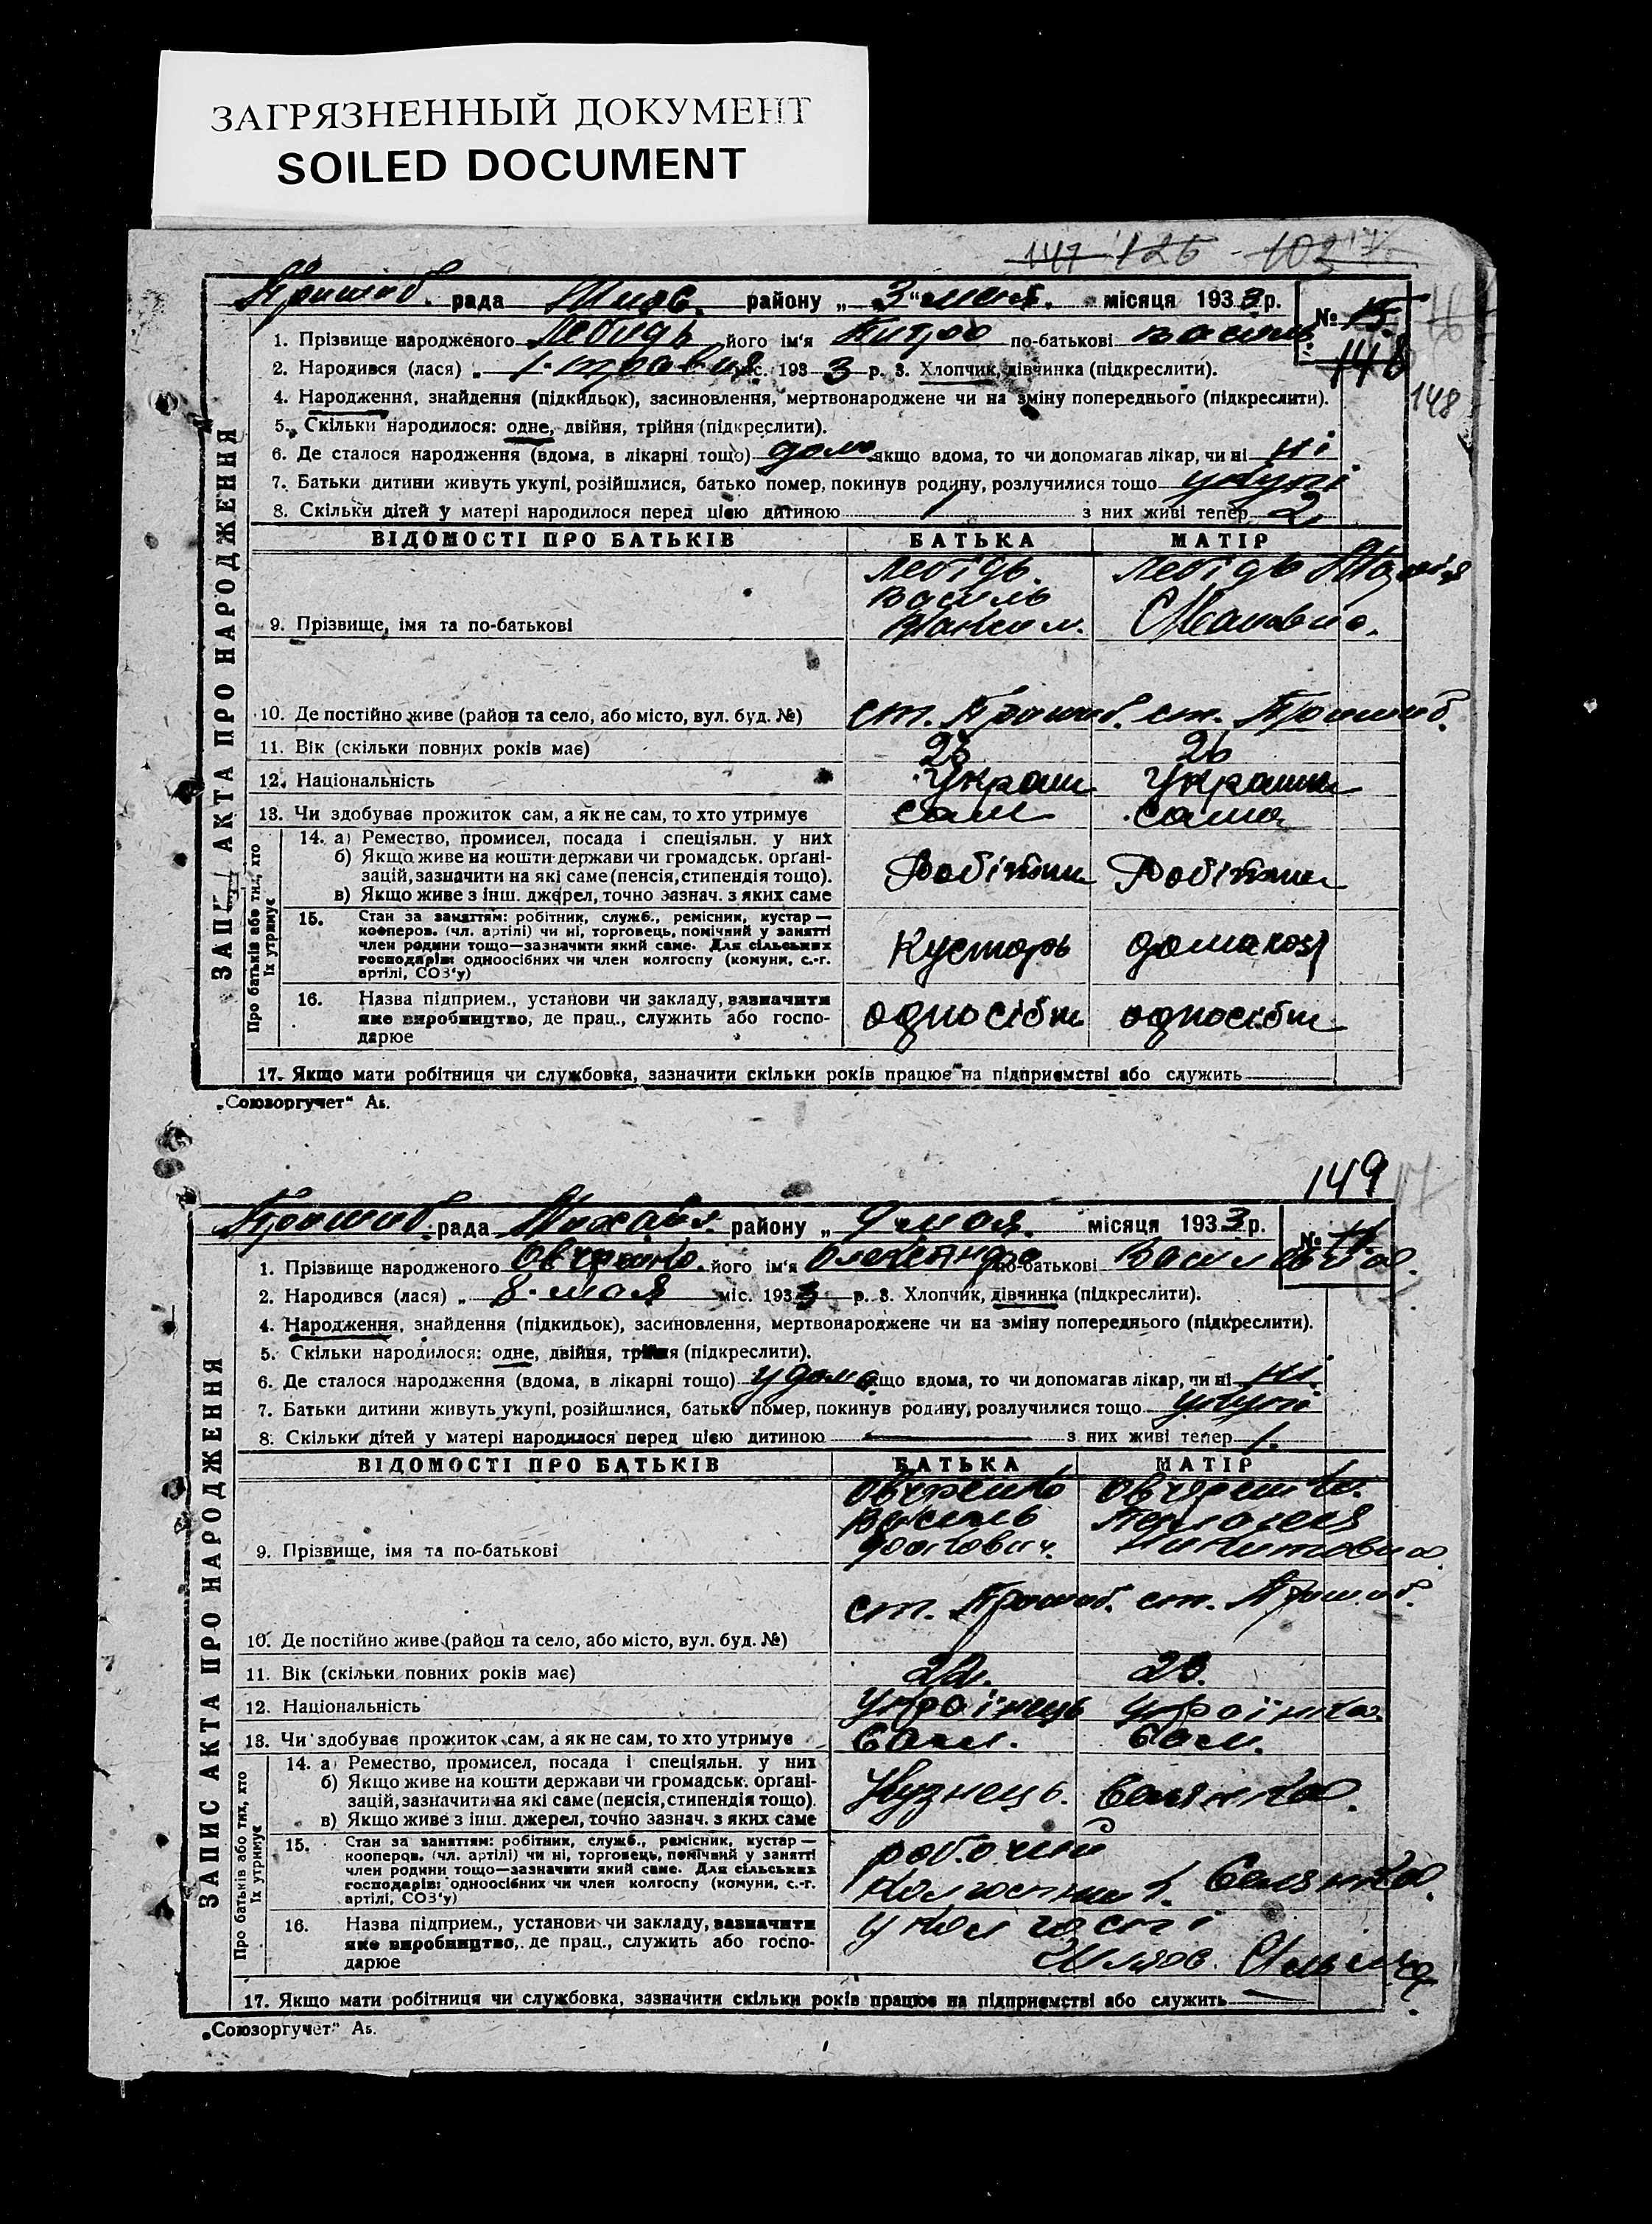 ЗАГРЯЗНЕННЫЙ ДОКУМЕНТ
SOILED DOCUMENT
147 126 102
рада района „ 3 " мая місяця 1933 р. № 15
148
148
ЗАПИС АКТА ПРО НАРОДЖЕННЯ
1. Прізвище народженого Лебидь його ім'я по-батькові Василь
2. Народився (лася) „ 1 травня міс. 1933 р. 3. Хлопчик, дівчинка (підкреслити).
4. Народження, знайдення (підкидьок), засиновлення, мертвонароджене чи на зміну попереднього (підкреслити).
5. Скільки народилося: одне, двійня, трійня (підкреслити).
6. Де сталося народження (вдома, в лікарні тощо) дома якщо вдома, то чи допомагав лікар, чи ні ні
7. Батьки дитини живуть укупі, розійшлися, батько помер, покинув родину, розлучилися тощо укупі
8. Скільки дітей у матері народилося перед цією дитиною 1 з них живі тепер 2
ВІДОМОСТІ ПРО БАТЬКІВ БАТЬКА МАТІР
Лебідь Лебідь
Василь
9. Прізвище, імя та по-батькові Максим.
10. Де постійно живе (район та село, або місто, вул. буд. №) ст. Пришиб. ст. Пришиб.
11. Вік (скільки повних років має) 26
12. Національність Україн Україн
13. Чи здобуває прожиток сам, а як не сам, то хто утримує сам сама
Про батьків або тих, хто їх утримує
14. а) Ремество, промисел, посада і спеціяльн. у них
б) Якщо живе на кошти держави чи громадськ. орґані-
зацій, зазначити на які саме (пенсія, стипендія тощо).
в) Якщо живе з інш. джерел, точно зазнач. з яких саме
Робітник Робітник
15. Стан за заняттям: робітник, служб., ремісник, кустар —
кооперов. (чл. артілі) чи ні, торговець, помічний у занятті
член родини тощо—зазначити який саме. Для сільських
господарів: одноосібних чи член колгоспу (комуни, с.-г.
артілі, СОЗ'у)
Кустарь домахозя
16. Назва підприєм., установи чи закладу, зазначити
яке виробництво, де прац., служить або госпо-
дарює
односібн односібн
17. Якщо мати робітниця чи службовка, зазначити скільки років працює на підприємстві або служить
„Союзоргучет" Аб.
149
Пришиб. рада Михайл. району „ 9 мая місяця 1933 р. №
ЗАПИС АКТА ПРО НАРОДЖЕННЯ
1. Прізвище народженого Овчаренко його ім'я по-батькові
2. Народився (лася) „ 8 мая міс. 1933 р. 3. Хлопчик, дівчинка (підкреслити).
4. Народження, знайдення (підкидьок), засиновлення, мертвонароджене чи на зміну попереднього (підкреслити).
5. Скільки народилося: одне, двійня, трійня (підкреслити).
6. Де сталося народження (вдома, в лікарні тощо) у дома якщо вдома, то чи допомагав лікар, чи ні ні
7. Батьки дитини живуть укупі, розійшлися, батько помер, покинув родину, розлучилися тощо укупі
8. Скільки дітей у матері народилося перед цією дитиною — з них живі тепер 1.
ВІДОМОСТІ ПРО БАТЬКІВ БАТЬКА МАТІР
Василь
9. Прізвище, імя та по-батькові
ст. Пришиб. ст. Пришиб.
10. Де постійно живе (район та село, або місто, вул. буд. №)
11. Вік (скільки повних років має) 22. 23.
12. Національність українець українка
13. Чи здобуває прожиток сам, а як не сам, то хто утримує Сам. Сам.
Про батьків або тих, хто їх утримує
14. а) Ремество, промисел, посада і спеціяльн. у них
б) Якщо живе на кошти держави чи громадськ. орґані-
зацій, зазначити на які саме (пенсія, стипендія тощо).
в) Якщо живе з інш. джерел, точно зазнач. з яких саме
Кузнець. Селянка.
15. Стан за заняттям: робітник, служб., ремісник, кустар —
кооперов. (чл. артілі) чи ні, торговець, помічний у занятті
член родини тощо—зазначити який саме. Для сільських
господарів: одноосібних чи член колгоспу (комуни, с.-г.
артілі, СОЗ'у)
робочий
колгоспник. Селянка.
16. Назва підприєм., установи чи закладу, зазначити
яке виробництво, де прац., служить або госпо-
дарює
у колгоспі
17. Якщо мати робітниця чи службовка, зазначити скільки років працює на підприємстві або служить —
„Союзоргучет" Аб.